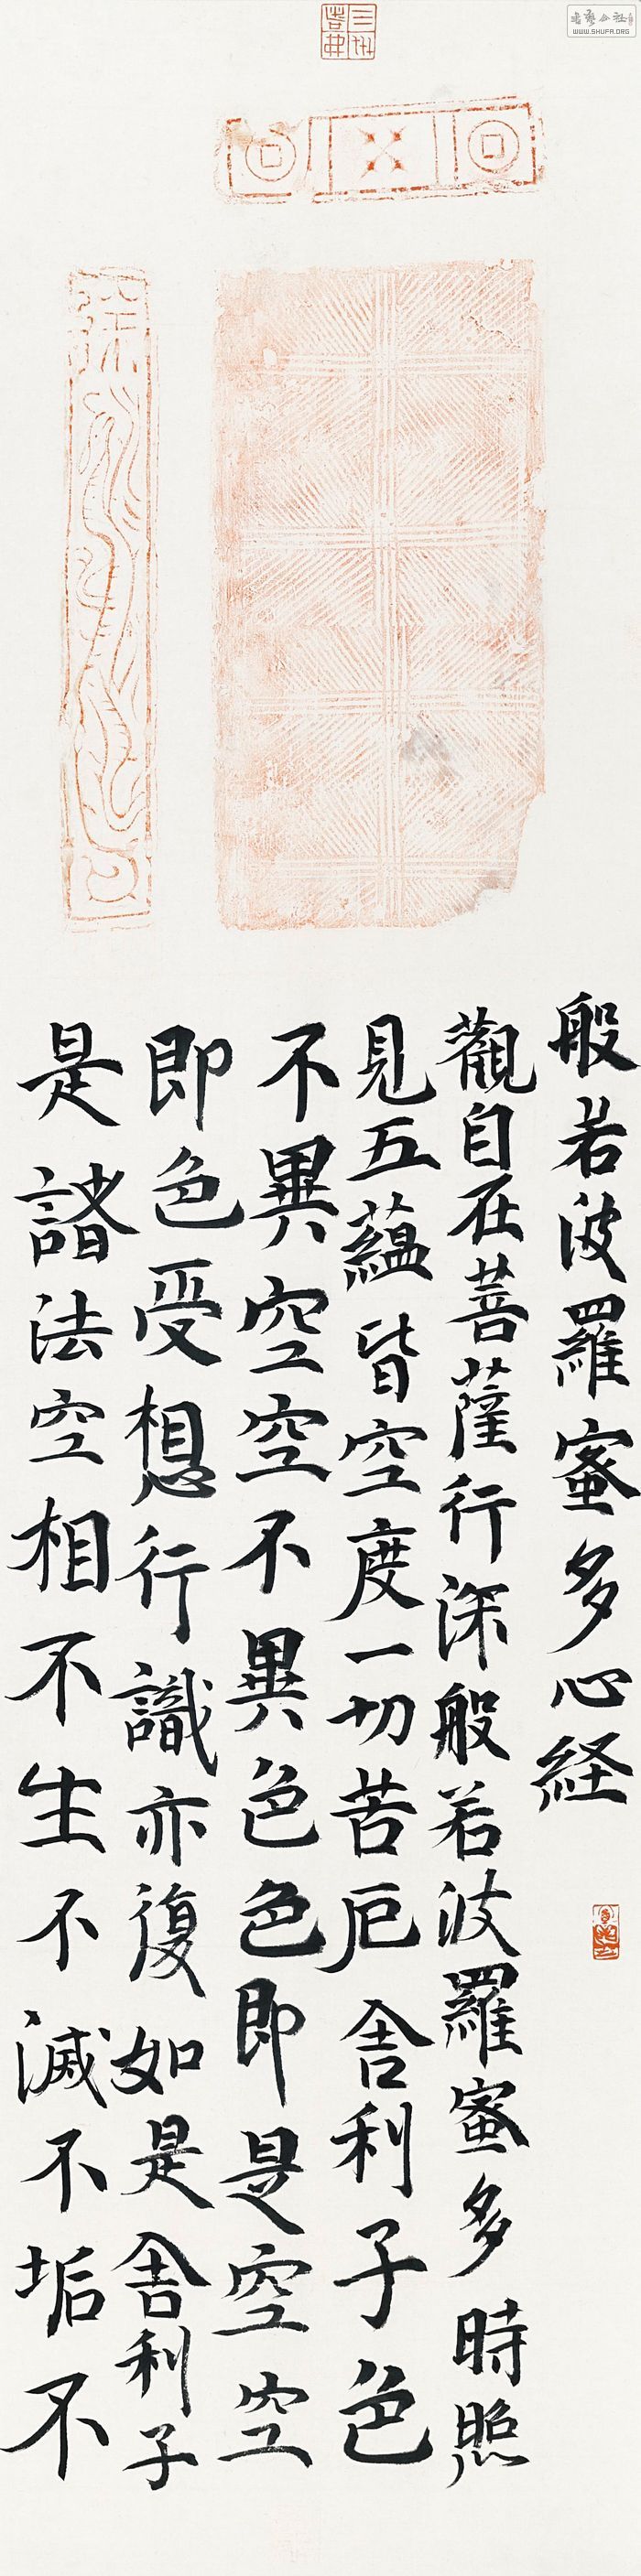 般若波羅蜜多心経
觀自在菩薩行深般若波羅蜜多時照
見五蘊皆空度一切苦厄舎利子色
不異空空不異色色即是空空
即色受想行識亦復如是舎利子
是諸法空相不生不滅不垢不
WWW.SHUFA.ORG